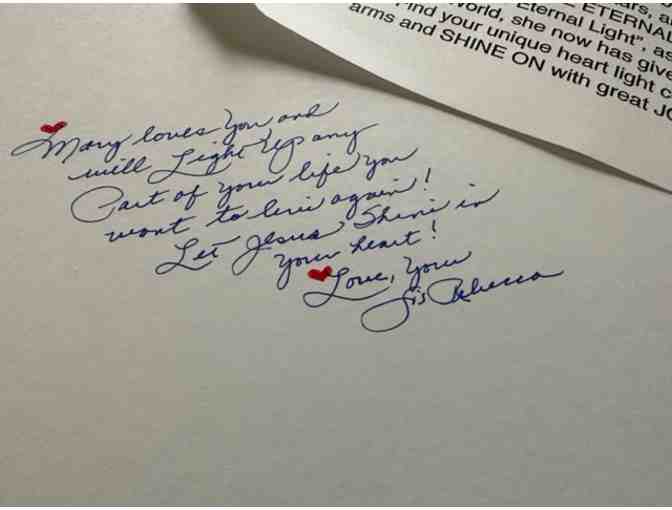 ars, a
E ETERNAL
world, she now has give
Eternal Light", as
find your unique heart light c
arms and SHINE ON with great JO
Mary loves you and
will Light Up any
Part of your life you
want to live again!
Let Jesus Shine in
your heart!
Love, your
Sis Rebecca